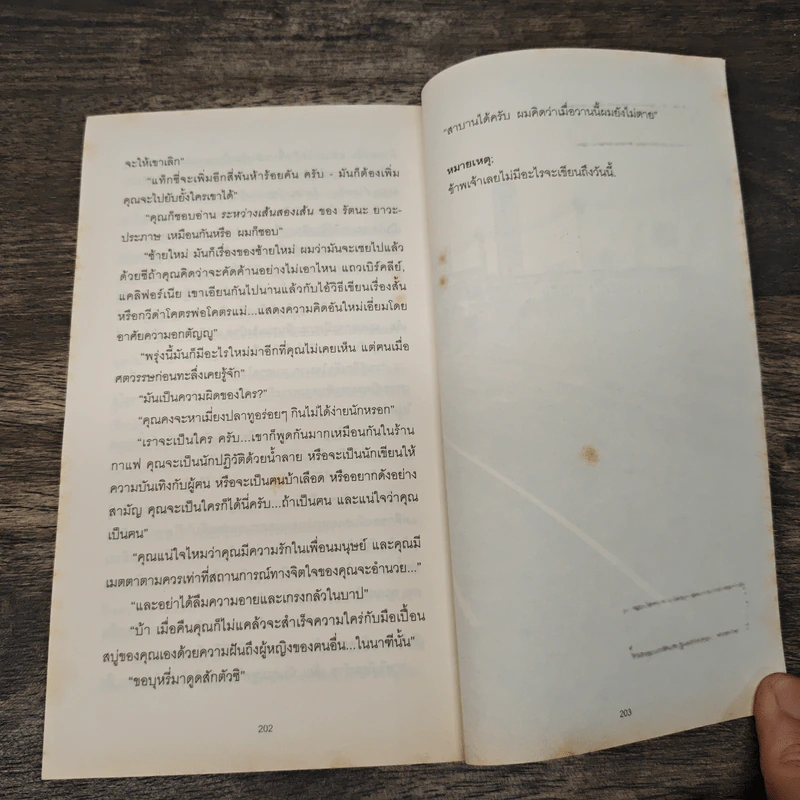 จะให้เขาเลิก"
"แท็กซี่จะเพิ่มอีกสี่พันห้าร้อยคัน ครับ - มันก็ต้องเพิ่ม
คุณจะไปยับยั้งใครเขาได้"
"คุณก็ชอบอ่าน ระหว่างเส้นสองเส้น ของ รัตนะ ยาวะ-
ประภาษ เหมือนกันหรือ ผมก็ชอบ"
"ซ้ายใหม่ มันก็เรื่องของซ้ายใหม่ ผมว่ามันจะเชยไปแล้ว
ด้วยซีถ้าคุณคิดว่าจะคัดค้านอย่างไม่เอาไหน แถวเบิร์คลีย์,
แคลิฟอร์เนีย เขาเอียนกันไปนานแล้วกับไอ้วิธีเขียนเรื่องสั้น
หรือกวีด่าโคตรพ่อโคตรแม่...แสดงความคิดอันใหม่เอี่ยมโดย
อาศัยความอกตัญญู"
"พรุ่งนี้มันก็มีอะไรใหม่มาอีกที่คุณไม่เคยเห็น แต่ฅนเมื่อ
ศตวรรษก่อนทะลึ่งเคยรู้จัก"
"มันเป็นความผิดของใคร?"
"คุณคงจะหาเมี่ยงปลาทูอร่อยๆ กินไม่ได้ง่ายนักหรอก"
"เราจะเป็นใคร ครับ...เขาก็พูดกันมากเหมือนกันในร้าน
กาแฟ คุณจะเป็นนักปฏิวัติด้วยน้ำลาย หรือจะเป็นนักเขียนให้
ความบันเทิงกับผู้ฅน หรือจะเป็นฅนบ้าเลือด หรืออยากดังอย่าง
สามัญ คุณจะเป็นใครก็ได้นี่ครับ...ถ้าเป็นฅน และแน่ใจว่าคุณ
เป็นฅน"
"คุณแน่ใจไหมว่าคุณมีความรักในเพื่อนมนุษย์ และคุณมี
เมตตาตามควรเท่าที่สถานการณ์ทางจิตใจของคุณจะอำนวย..."
"และอย่าได้ลืมความอายและเกรงกลัวในบาป"
"บ้า เมื่อคืนคุณก็ไม่แคล้วจะสำเร็จความใคร่กับมือเปื้อน
สบู่ของคุณเองด้วยความฝันถึงผู้หญิงของฅนอื่น...ในนาฑีนั้น"
"ขอบุหรี่มาดูดสักตัวซิ"
202
"สาบานได้ครับ ผมคิดว่าเมื่อวานนี้ผมยังไม่ตาย"
หมายเหตุ;
ข้าพเจ้าเลยไม่มีอะไรจะเขียนถึงวันนี้.
203